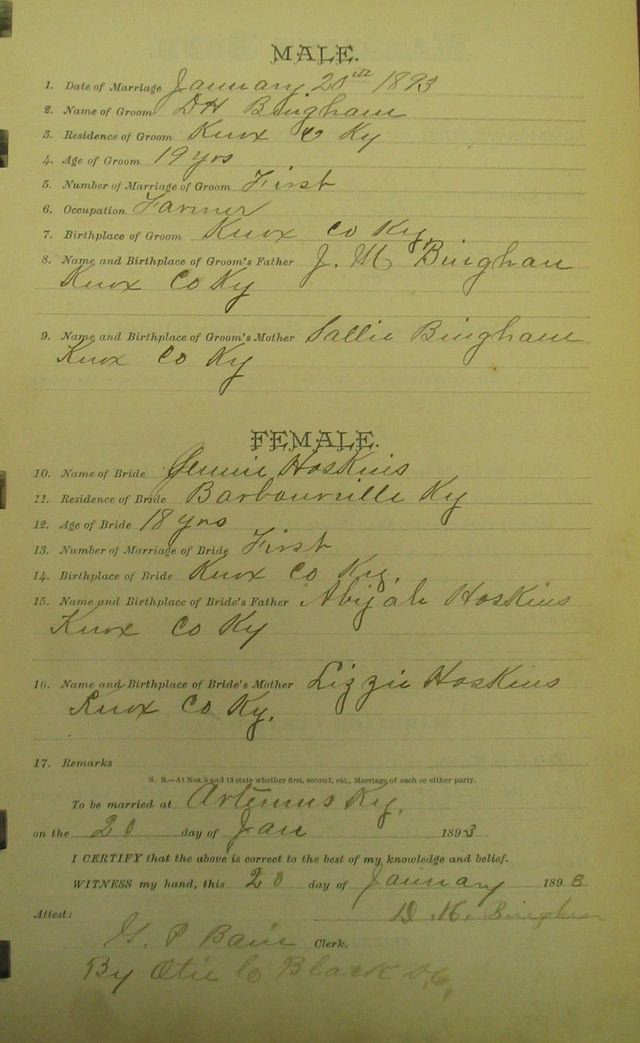 MALE.
1. Date of Marriage January 20th 1893
2. Name of Groom D H Bingham
3. Residence of Groom Knox C Ky
4. Age of Groom 19 yrs
5. Number of Marriage of Groom First
6. Occupation Farmer
7. Birthplace of Groom Knox Co Ky,
8. Name and Birthplace of Groom's Father J. M Bingham
Knox Co Ky
9. Name and Birthplace of Groom's Mother Sallie Bingham
Knox Co Ky
FEMALE.
10. Name of Bride Jennie Hoskins
11. Residence of Bride Barbourville Ky
12. Age of Bride 18 yrs
13. Number of Marriage of Bride First
14. Birthplace of Bride Knox Co Ky,
15. Name and Birthplace of Bride's Father Abijah Hoskins
Knox Co Ky
16. Name and Birthplace of Bride's Mother Lizzie Hoskins
Knox Co Ky.
17. Remarks
N. B.—At Nos. 5 and 13 state whether first, second, etc., Marriage of each or either party.
To be married at Artemus Ky,
on the 20 day of Jan 1893
I CERTIFY that the above is correct to the best of my knowledge and belief.
WITNESS my hand, this 20 day of January 1893
D. H. Bingham
Attest:
G. P Bain Clerk.
By Otie C Black D,C,